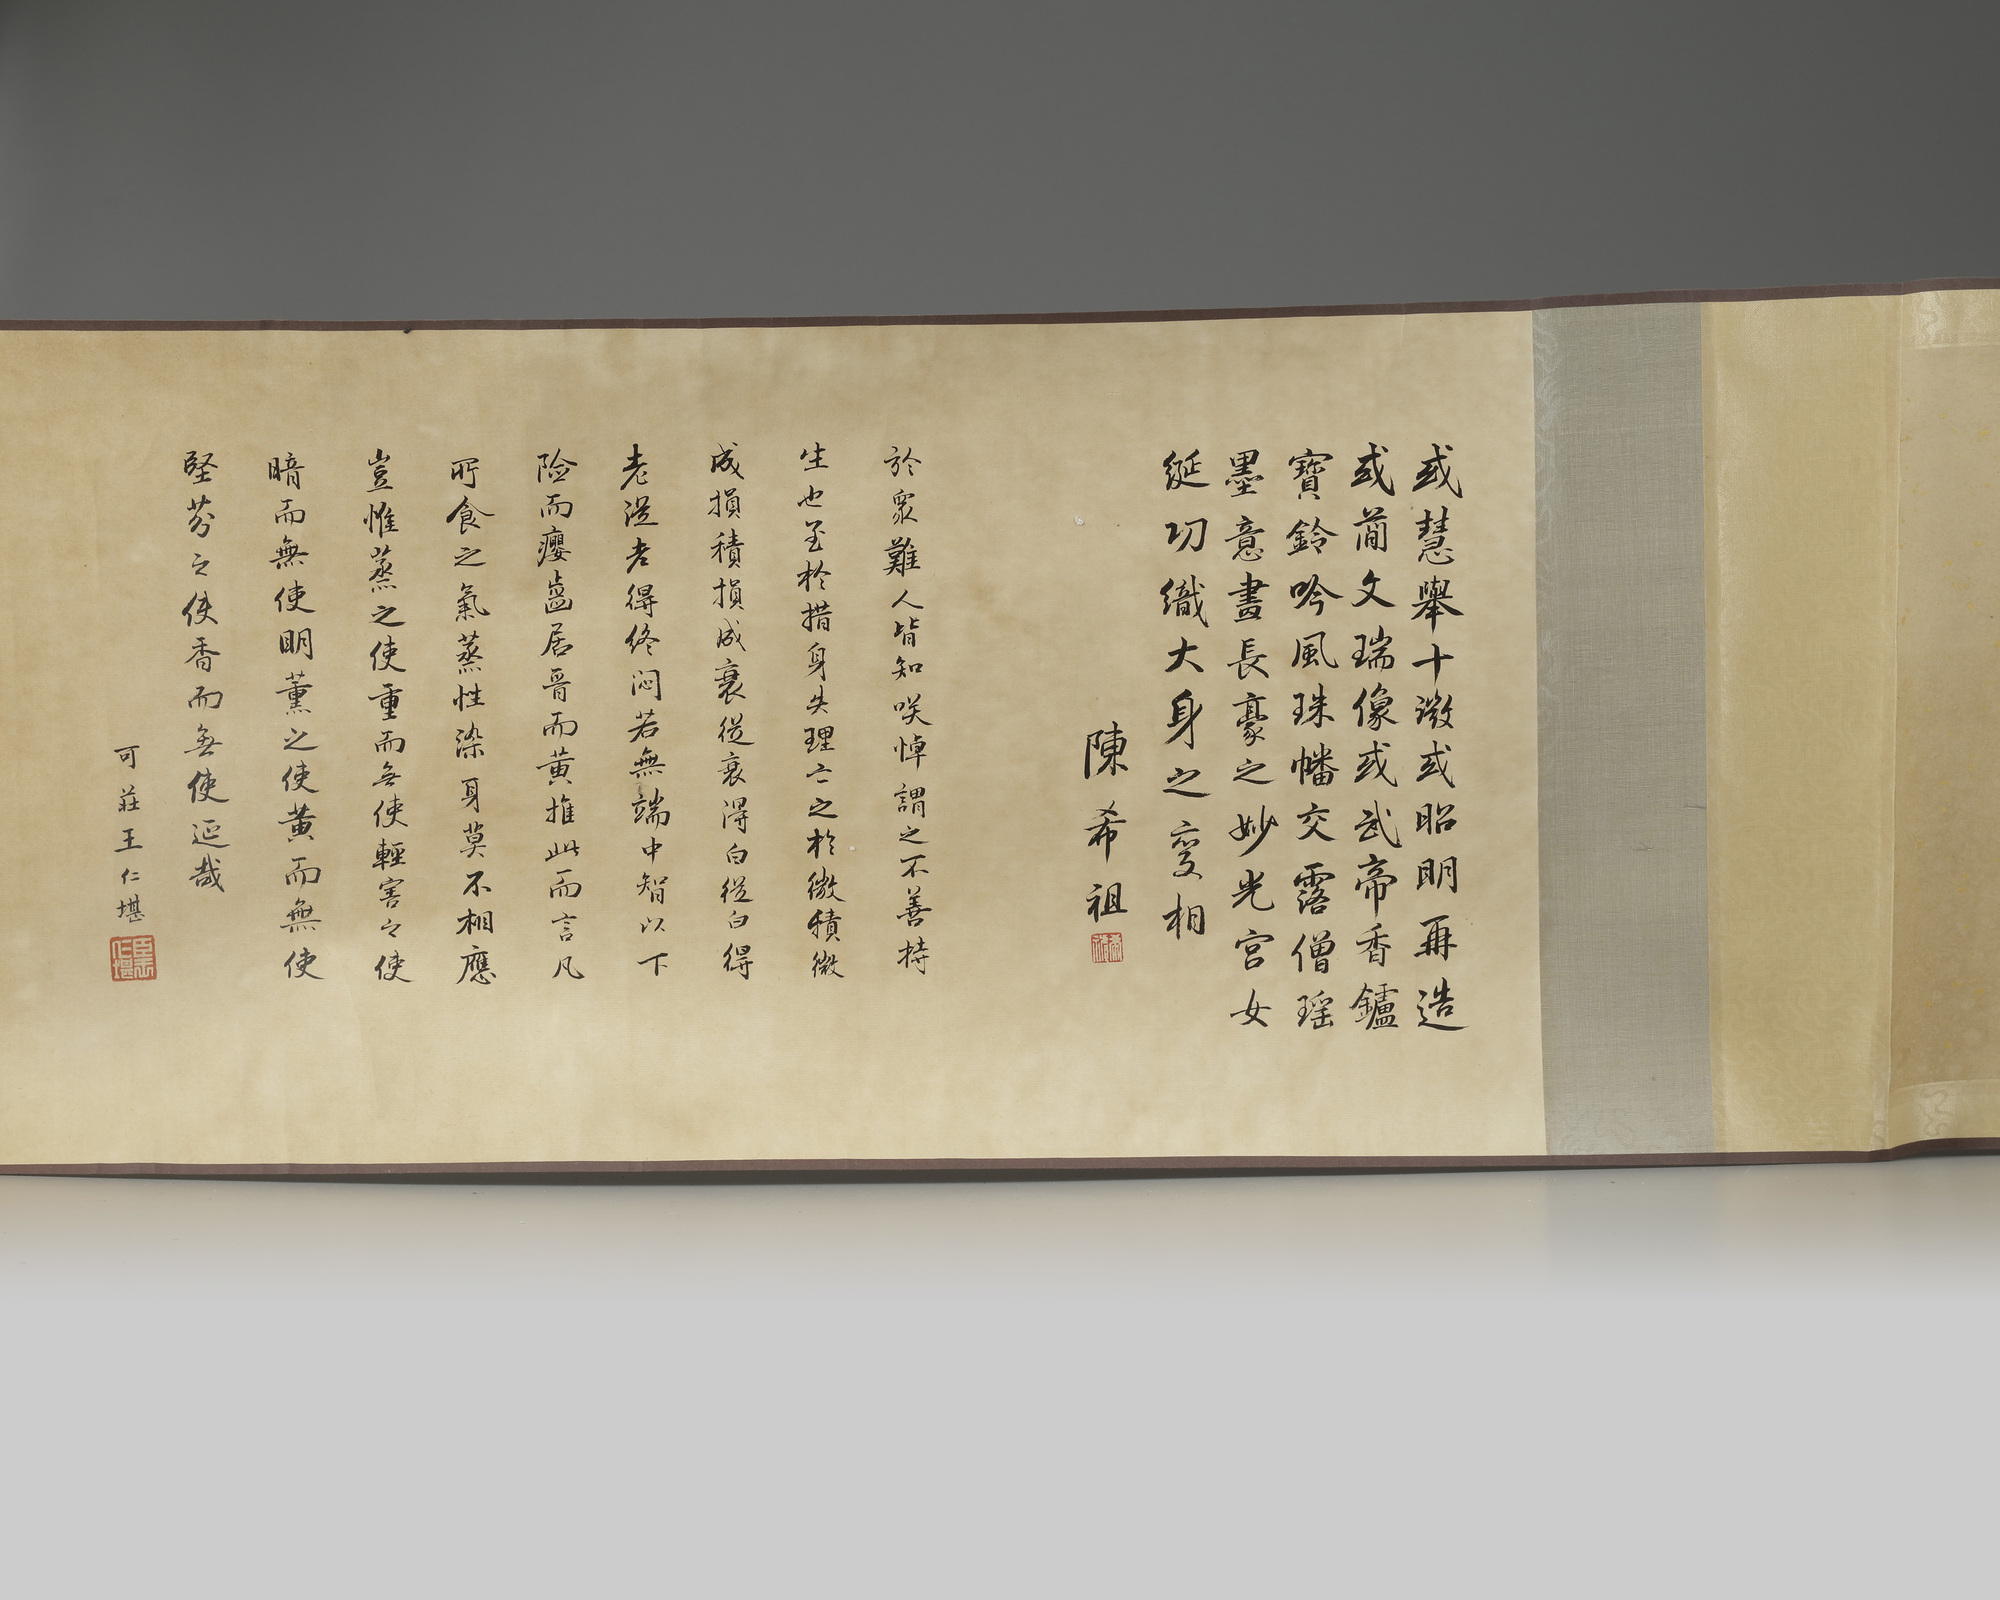 或慧舉十徵或昭明再造
或蕳文瑞像或武帝香鑪
寶鈴吟風珠幡交露僧瑶
墨意畫長豪之妙光宮女
綖切織大身之變相
陳希祖
於眾難人皆知咲悼謂之不善持
生也至於措身失理亡之於微積微
成損積損成衰從衰得白從白得
老從老得終悶若無端中智以下
险而癭齒居晉而黃推此而言凡
所食之氣蒸性染身莫不相應
豈惟蒸之使重而無使輕害之使
暗而無使明薰之使黃而無使
堅芬之使香而無使延哉
可莊王仁堪